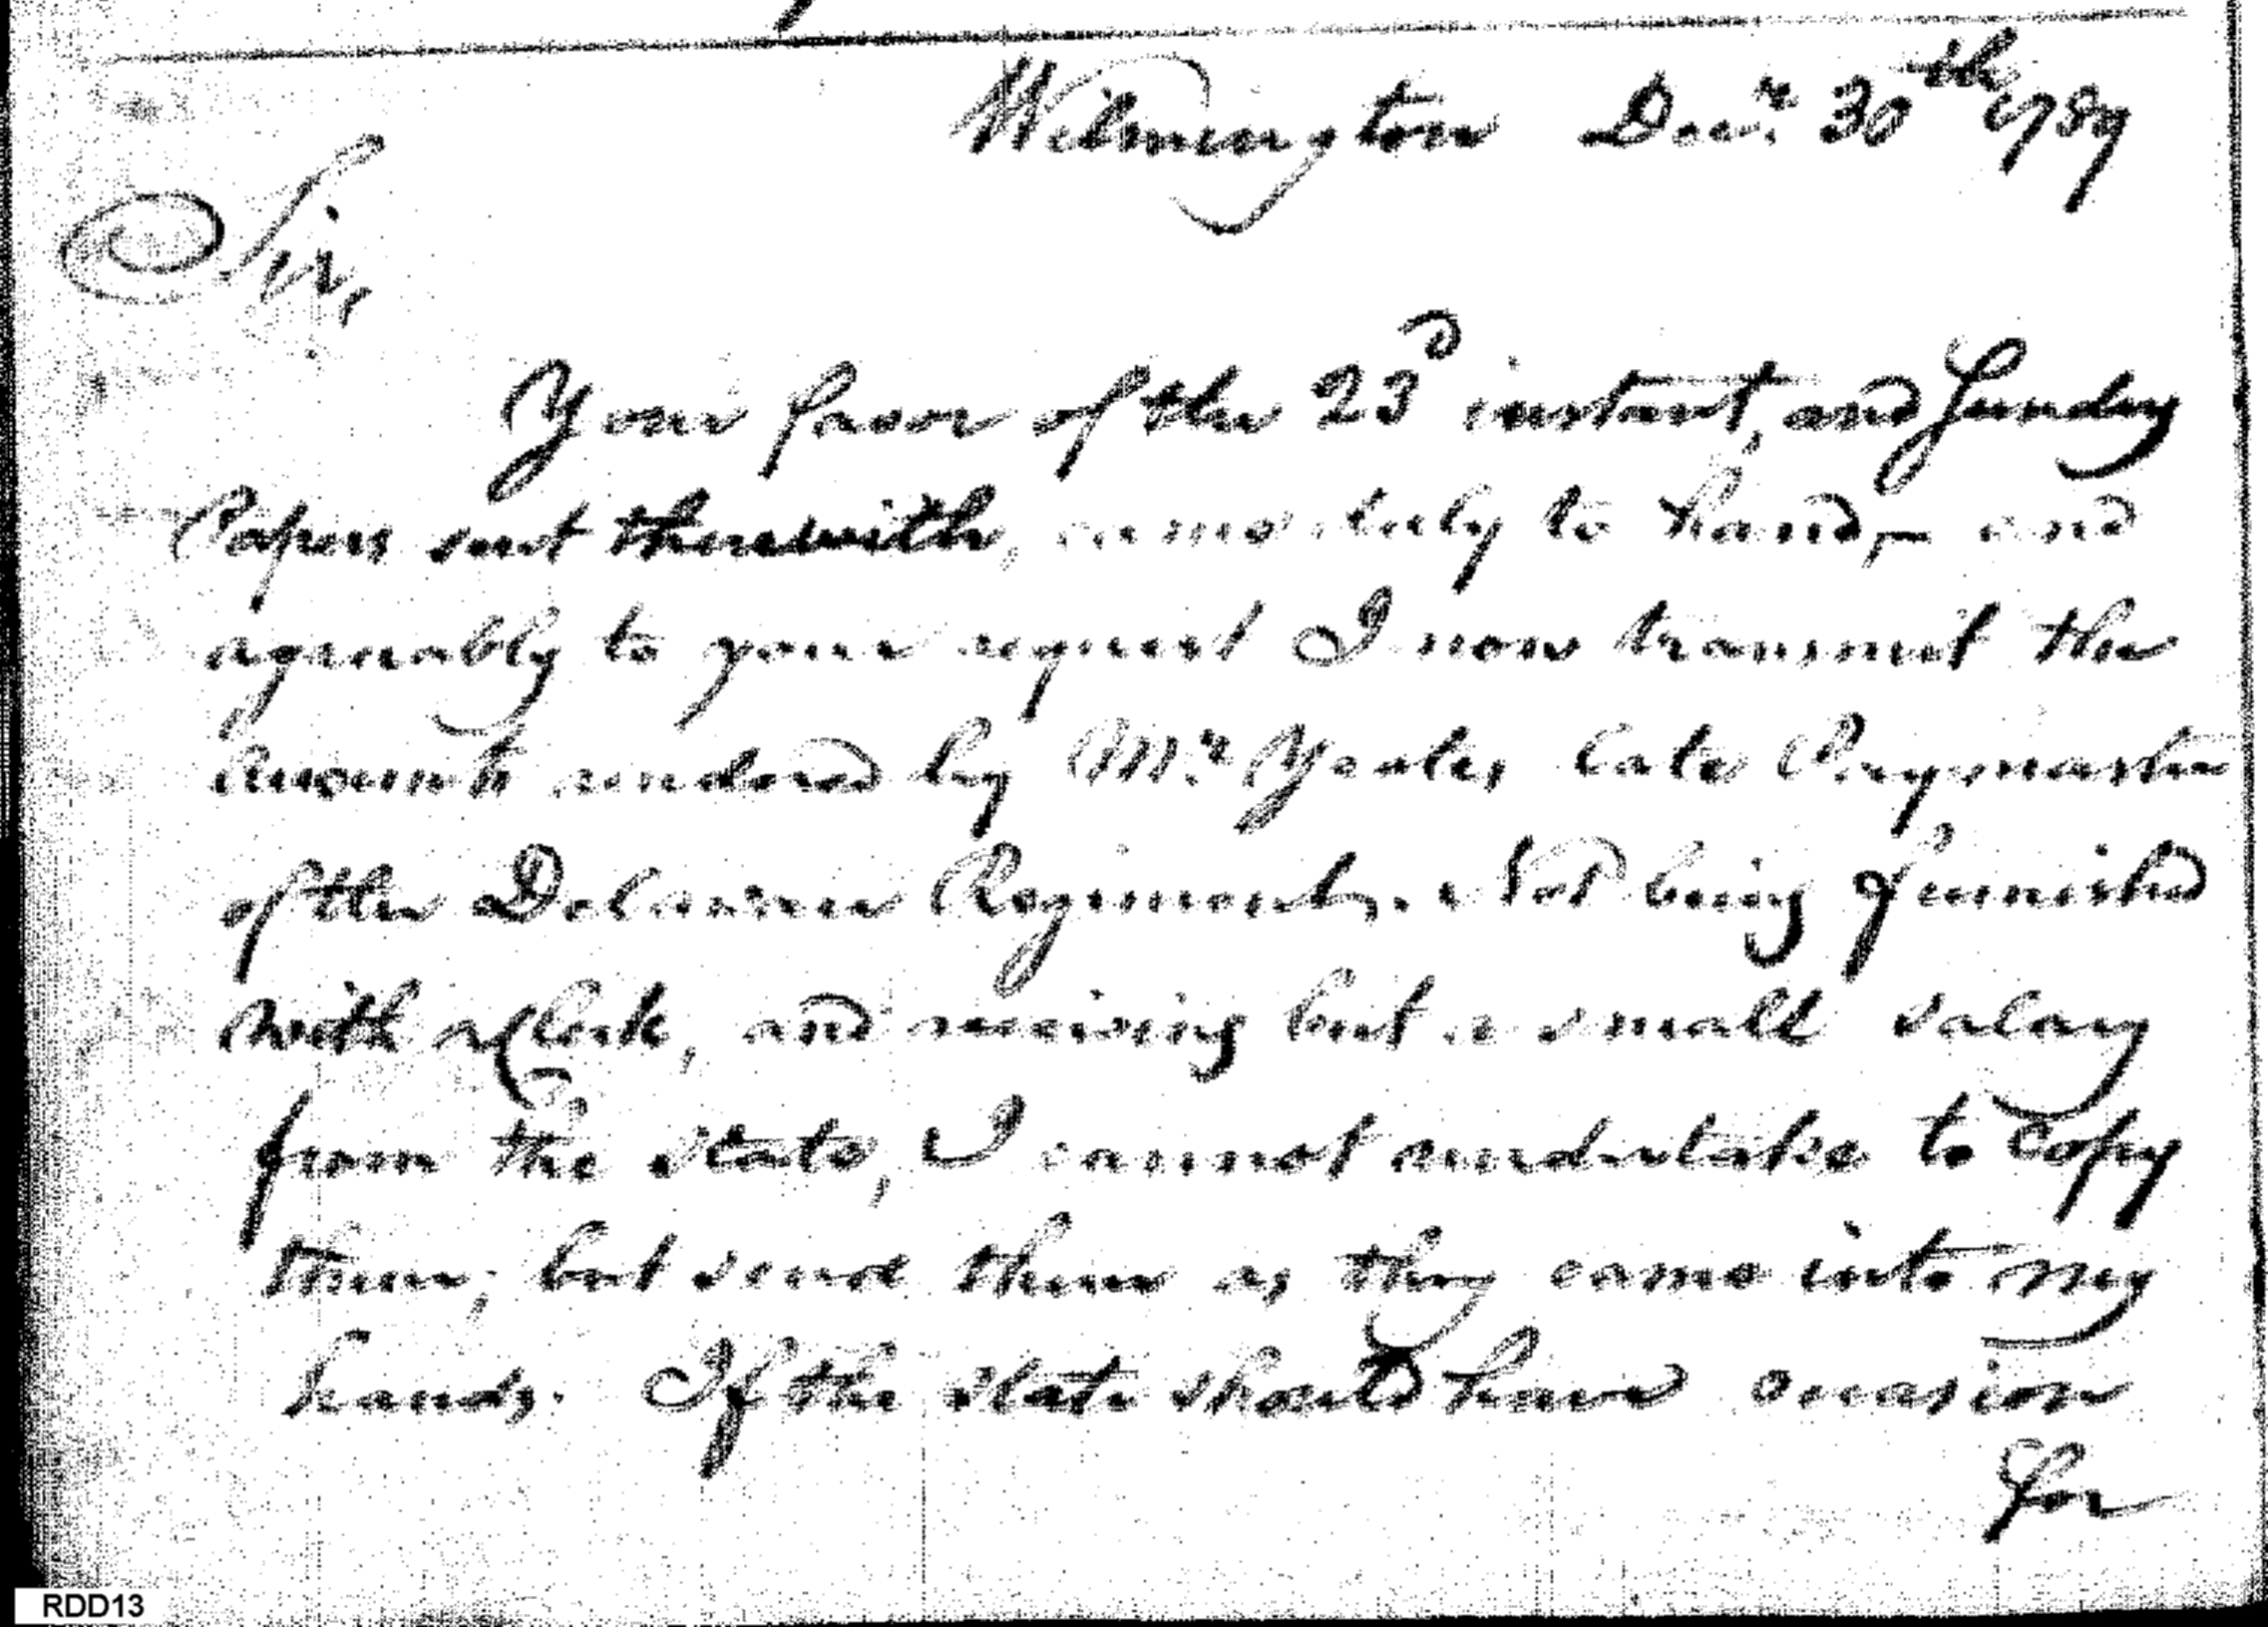 Wilmington Decr. 30th 1789
Sir,
Your favor of the 23d instant, and Sundry
Papers sent therewith, came duly to hand, – and
agreeably to your request I now transmit the
Accounts rendered by Mr. Yeates late Paymaster
of the Delaware Regiment. Not being furnished
with a Clerk, and receiving but a small salary
from the State, I cannot undertake to Copy
them; but send them as they came into my
hands. If the State should have occasion
for
RDD13